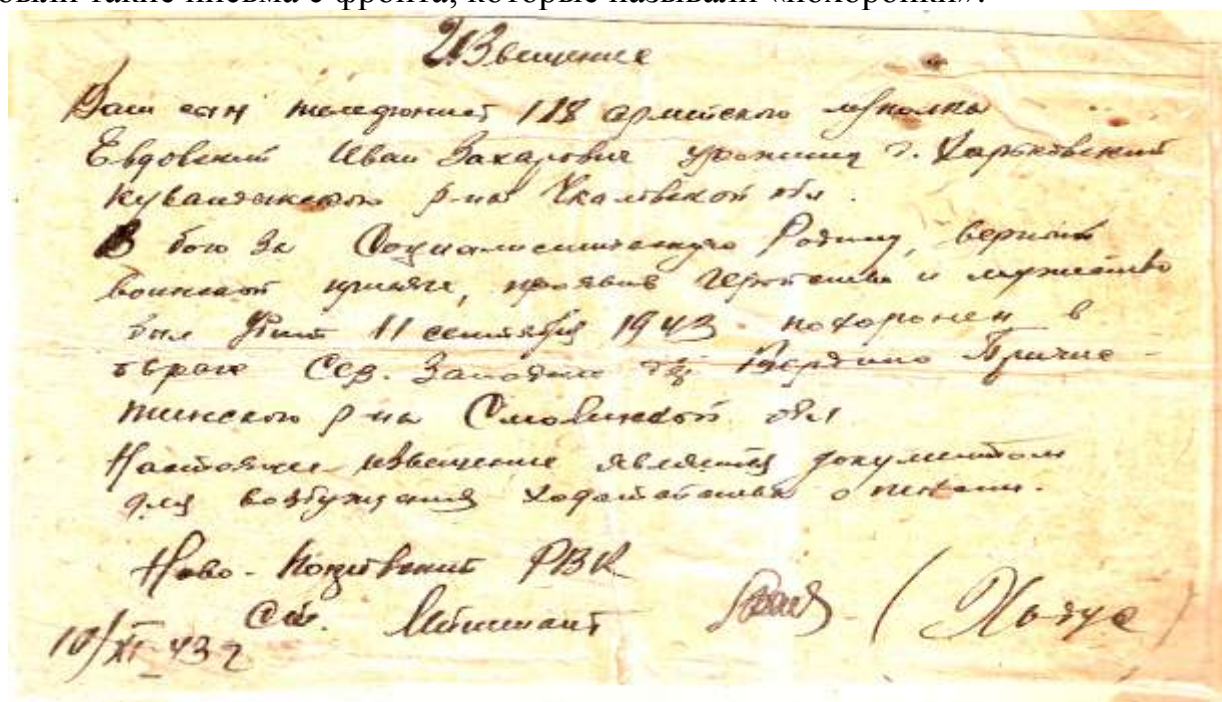 такие письма с фронта, которые называли «похоронки».
Извещение
Ваш сын телефонист 118 армейского
Евдовский Иван Захарович уроженец Харьковский
Кувандыкского р-на Чкаловской обл.
В бою за Социалистическую Родину, верный
воинской присяге, проявив геройство и мужество
был убит 11 сентября 1943 похоронен в
овраге Сев. Западнее Пречис-
тинского р-на Смоленской обл
Настоящее извещение является документом
для возбуждения ходатайства о пенсии.
Ново-Покровский РВК
Ст. Лейтенант
10/XI-43 г